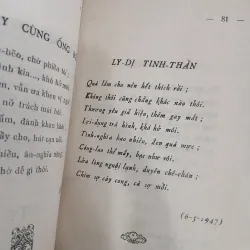 Y CÙNG ÔNG
-bẽo, chờ phiền
kia..., khó
vẫn ưa khen vị
nở trách mái
đành khao
cho, hút cạn
nhiều, ân-nghĩa nặng
hở dế gì thời.
— 81 —
LY-DỊ TINH-THẦN
Quá lắm cho nên hết thích rồi ;
Không thôi cũng chẳng khác nào thôi.
Thương yêu giả hiệu, thêm gay mắt ;
Lợi-dụng trá hình, khá hổ môi.
Tình-nghĩa bao nhiêu, đen quá mực ;
Công-lao thế mấy, bạc như vôi.
Lửa lòng nguội lạnh, duyên chê-chán ;
Chim sợ cây cong, cá sợ mồi.
(6-5-1947)